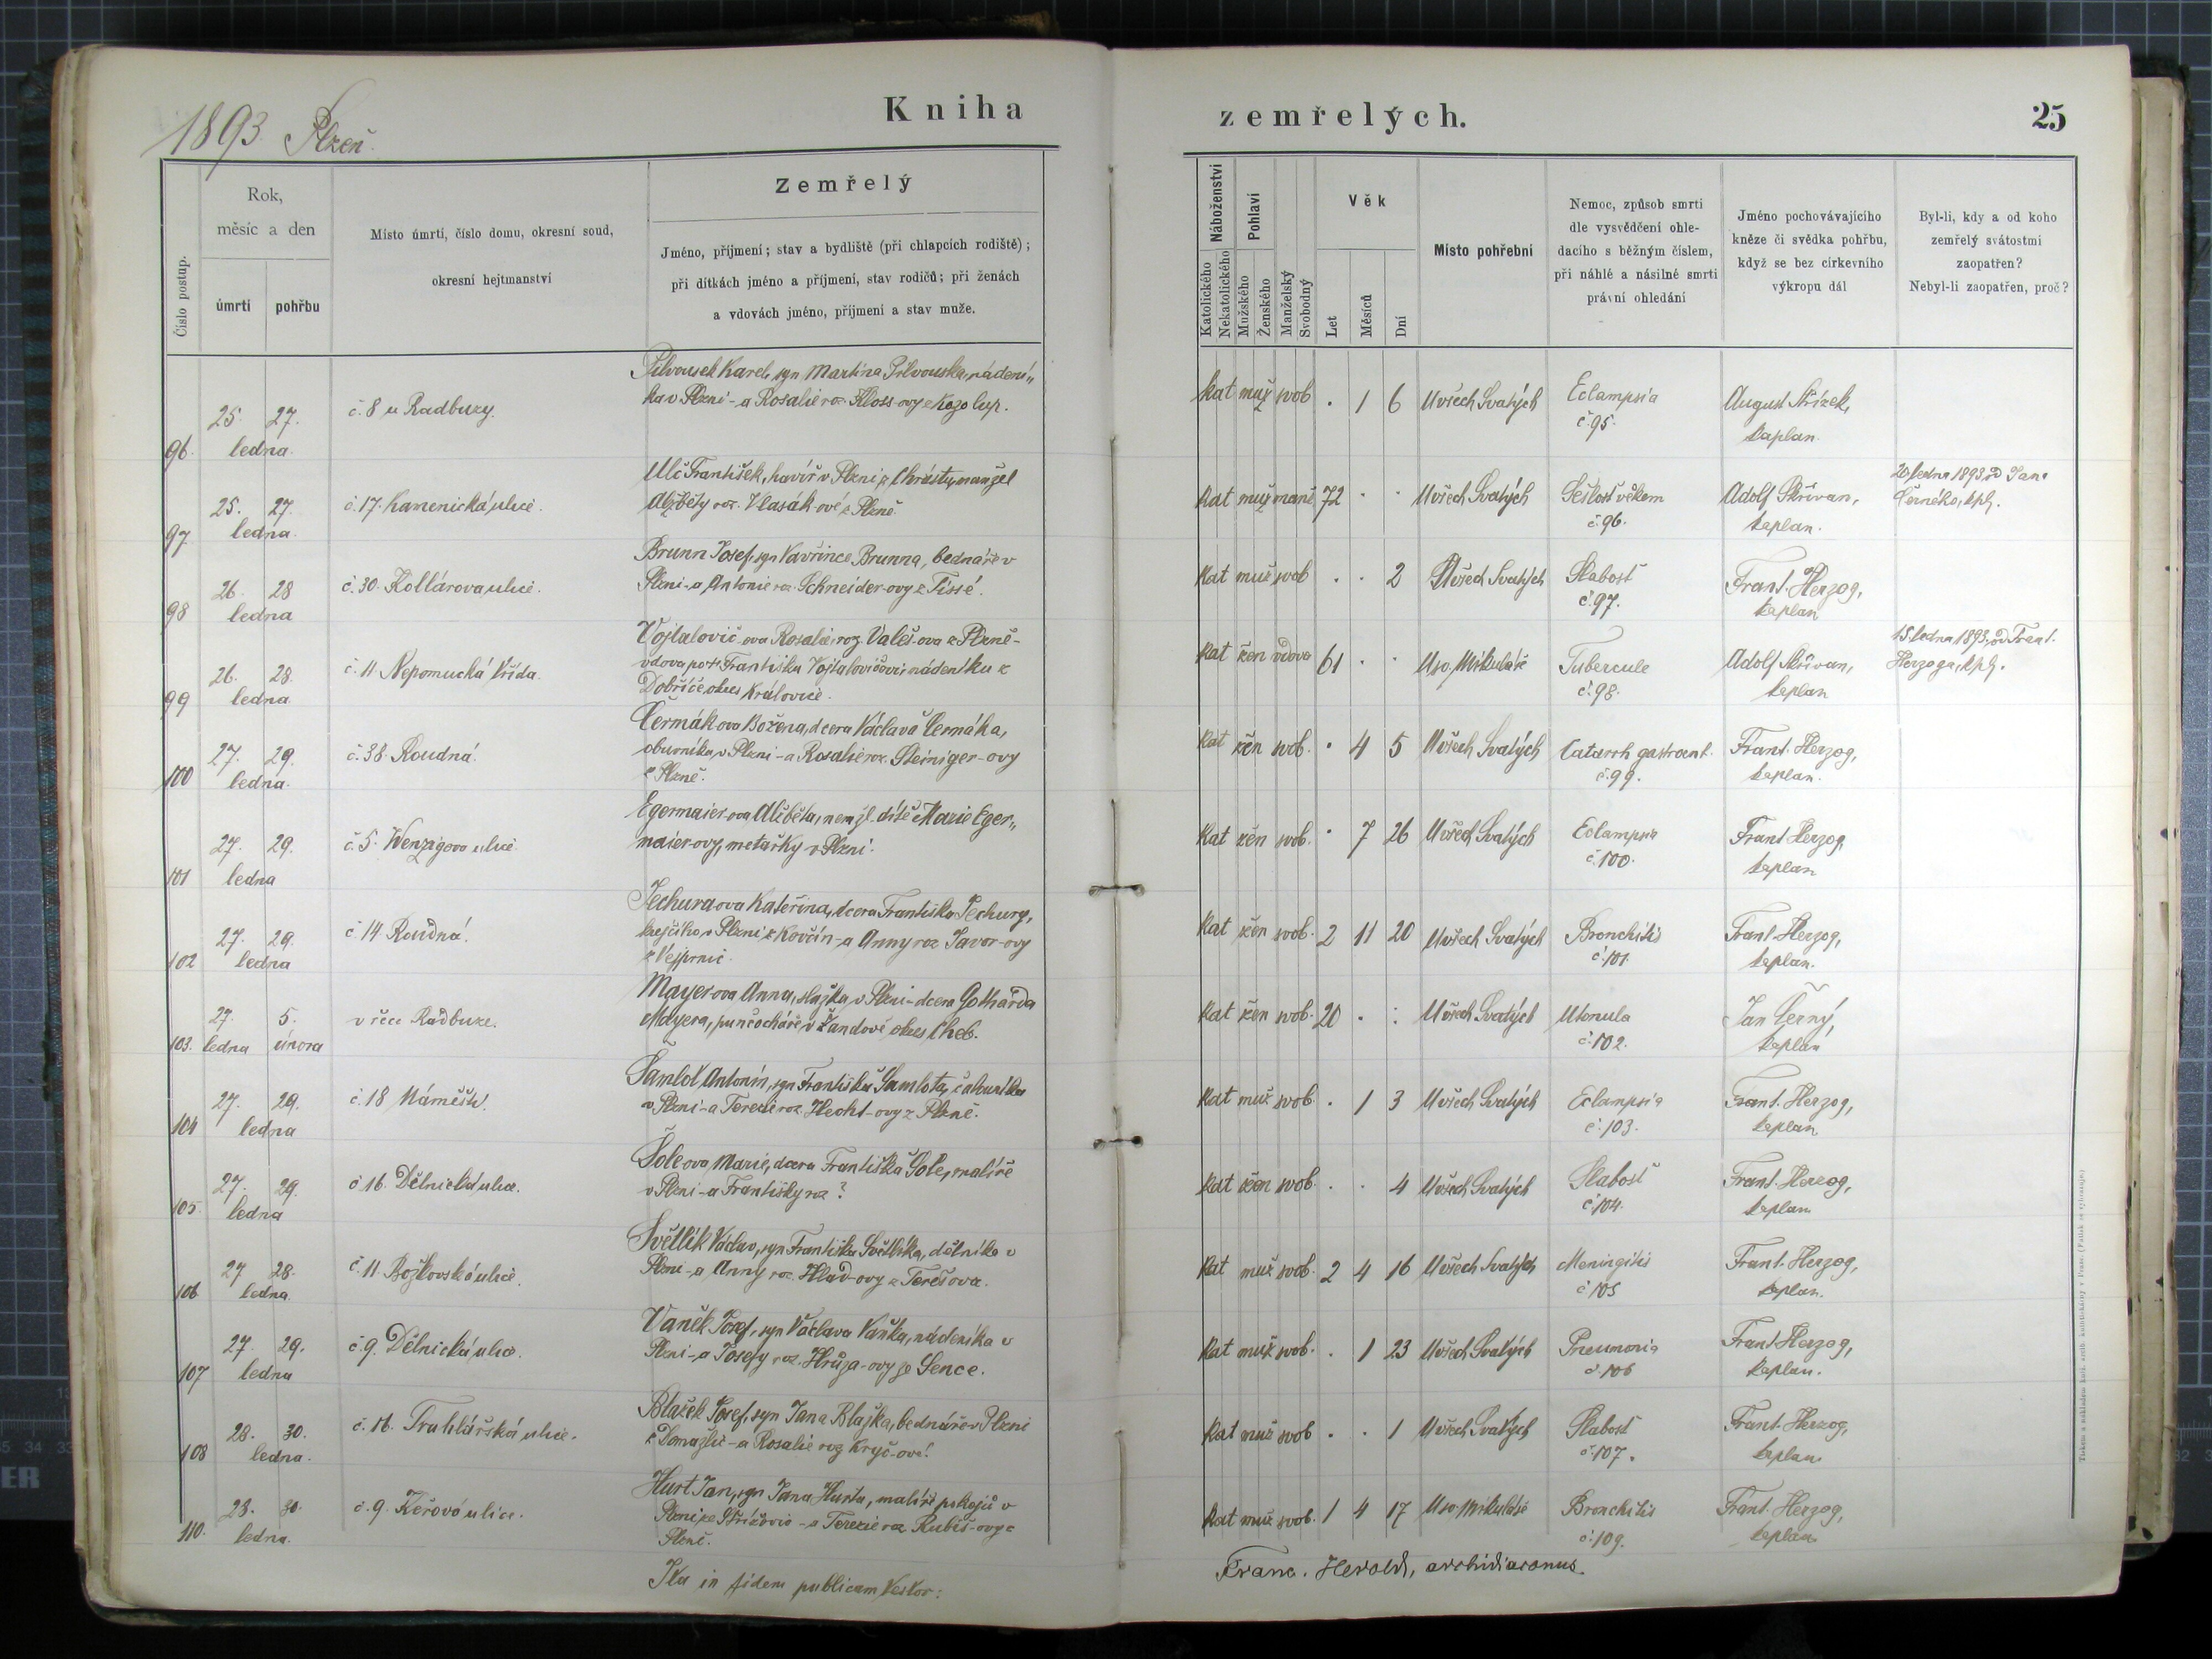 1893. Plzeň.
Kniha zemřelých.
25
Číslo postup.
Rok,
měsíc a den
úmrtí
pohřbu
Místo úmrtí, číslo domu, okresní soud,
okresní hejtmanství
Zemřelý
Jméno, příjmení; stav a bydliště (při chlapcích rodiště);
při dítkách jméno a příjmení, stav rodičů; při ženách
a vdovách jméno, příjmení a stav muže.
Náboženství
Katolického
Nekatolického
Pohlaví
Mužského
Ženského
Manželský
Svobodný
Věk
Let
Měsíců
Dní
Místo pohřební
Nemoc, způsob smrti
dle vysvědčení ohle-
dacího s běžným číslem,
při náhlé a násilné smrti
právní ohledání
Jméno pochovávajícího
kněze či svědka pohřbu,
když se bez církevního
výkropu dál
Byl-li, kdy a od koho
zemřelý svátostmi
zaopatřen?
Nebyl-li zaopatřen, proč?
96. 25. 27. ledna
č. 8 u Radbuzy.
Pilvousek Karel, syn Martina Pilvouska, nádení„
ka v Plzni - a Rosalie roz. Kloss-ovy z
kat muž svob . 1 6 U všech Svatých
Eclampsia
č. 95.
August Střízek,
kaplan.
97. 25. 27. ledna.
č. 17. Kamenická ulice.
Ulč František, havíř v Plzni z Chrástu, manžel
Alžběty roz. Vlasák-ové z Plzně
kat muž manž 72 . . U všech Svatých
Sešlosť věkem
č. 96.
Adolf Skřivan,
kaplan.
20. ledna 1893 od Jana
Černého, kpl.
98 26. 28 ledna
č. 30. Kollárova ulice.
Brunn Josef, syn Vavřince Brunna, bednáře v
Plzni - a Antonie roz. Schneider-ovy z Tissé.
kat muž svob . . 2 U všech Svatých
Slabosť
č. 97.
Frant. Herzog,
kaplan
99 26. 28. ledna
č. 11 Nepomucká třída.
Vojtalovič-ova Rosalie, roz. Valeš-ova z Plzně -
vdova po † Františku Vojtalovičovi, nádeníku z
Dobříče, okres Kralovice.
kat žen vdova 61 . . U sv. Mikuláše
Tubercule
č. 98.
Adolf Skřivan,
kaplan
15. ledna 1893, od Frant.
Herzoga, kpl.
100 27. 29. ledna.
č. 38. Roudná.
Čermák ova Božena, dcera Václava Čermáka,
obuvníka v Plzni - a Rosalie roz. Steiniger-ovy
z Plzně.
kat žen svob. . 4 5 U všech Svatých
Catarrh gastroent.
č. 99.
Frant. Herzog,
kaplan.
101 27. 29. ledna
č. 5. Wenzigova ulice.
Egermaier-ova Alžběta, nemžl. dítě Marie Eger„
maier-ovy, metařky v Plzni.
kat žen svob. . 7 26 U všech Svatých
Eclampsia
č. 100.
Frant. Herzog,
kaplan
102 27. 29. ledna
č. 14 Roudná.
Jechura ova Kateřina, dcera Františka Jechury,
krejčího v Plzni z Kovčín - a Anny roz. Javor-ovy
z Vejprnic.
kat žen svob. 2 11 20 U všech Svatých
Bronchitis
č. 101.
Frant. Herzog,
kaplan.
103. 27. ledna 5. února
v řece Radbuze.
Mayer-ova Anna, služka v Plzni - dcera Gotharda
Mayera, punčocháře v Žandově okres Cheb.
kat žen svob. 20 . . U všech Svatých
Utonula
č. 102.
Jan Černý,
kaplan
104 27. 29. ledna
č. 18 Náměstí.
Šamlot Antonín, syn Františka Šamlota, čalouníka
v Plzni - a Terezie roz. Hecht-ovy z Plzně.
kat muž svob. . 1 3 U všech Svatých
Eclampsia
č. 103.
Frant. Herzog,
kaplan
105 27. 29. ledna
č. 16. Dělnická ulice.
Šole ova Marie, dcera Františka Šole, malíře
v Plzni - a Františky roz ?
kat žen svob. . . 4 U všech Svatých
Slabosť
č. 104.
Frant. Herzog,
kaplan
106 27 28. ledna.
č. 11 Božkovská ulice.
Světlík Václav, syn Františka Světlíka, dělníka v
Plzni - a Anny roz. Hlad-ovy z Terešova.
kat muž svob. 2 4 16 U všech Svatých
Meningitis
č. 105
Frant. Herzog,
kaplan.
107 27. 29. ledna
č. 9. Dělnická ulice.
Vaněk Josef, syn Václava Vaňka, nádeníka v
Plzni - a Josefy roz. Hrůza-ovy ze Sence.
kat muž svob. . 1 23 U všech Svatých
Pneumonia
č. 106
Frant. Herzog,
kaplan.
108 28. 30. ledna.
č. 16. Truhlářská ulice.
Blažek Josef, syn Jana Blažka, bednáře v Plzni
z Domažlic - a Rosalie roz Kryč-ové!
kat muž svob . . 1 U všech Svatých
Slabosť
č. 107.
Frant. Herzog,
kaplan
110. 28. 30. ledna.
č. 9. Keřová ulice.
Hurt Jan, syn Jana Hurta, malíře pokojů v
Plzni ze - a Terezie roz. Rubiš-ovy z
Plzně.
kat muž svob. 1 4 17 U sv. Mikuláše
Bronchitis
č. 109.
Frant. Herzog,
kaplan
Ita in fidem publicam testor:
Franc. Herold, archidiaconus.